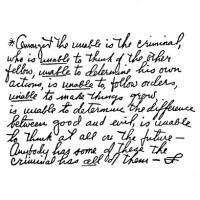 *Amongst the unable is the criminal,
who is unable to think of the other
fellow, unable to determine his own
actions, is unable to follow orders,
unable to make things grow,
is unable to determine the difference
between good and evil, is unable
to think at all on the future —
Anybody has some of these the
criminal has all of them —